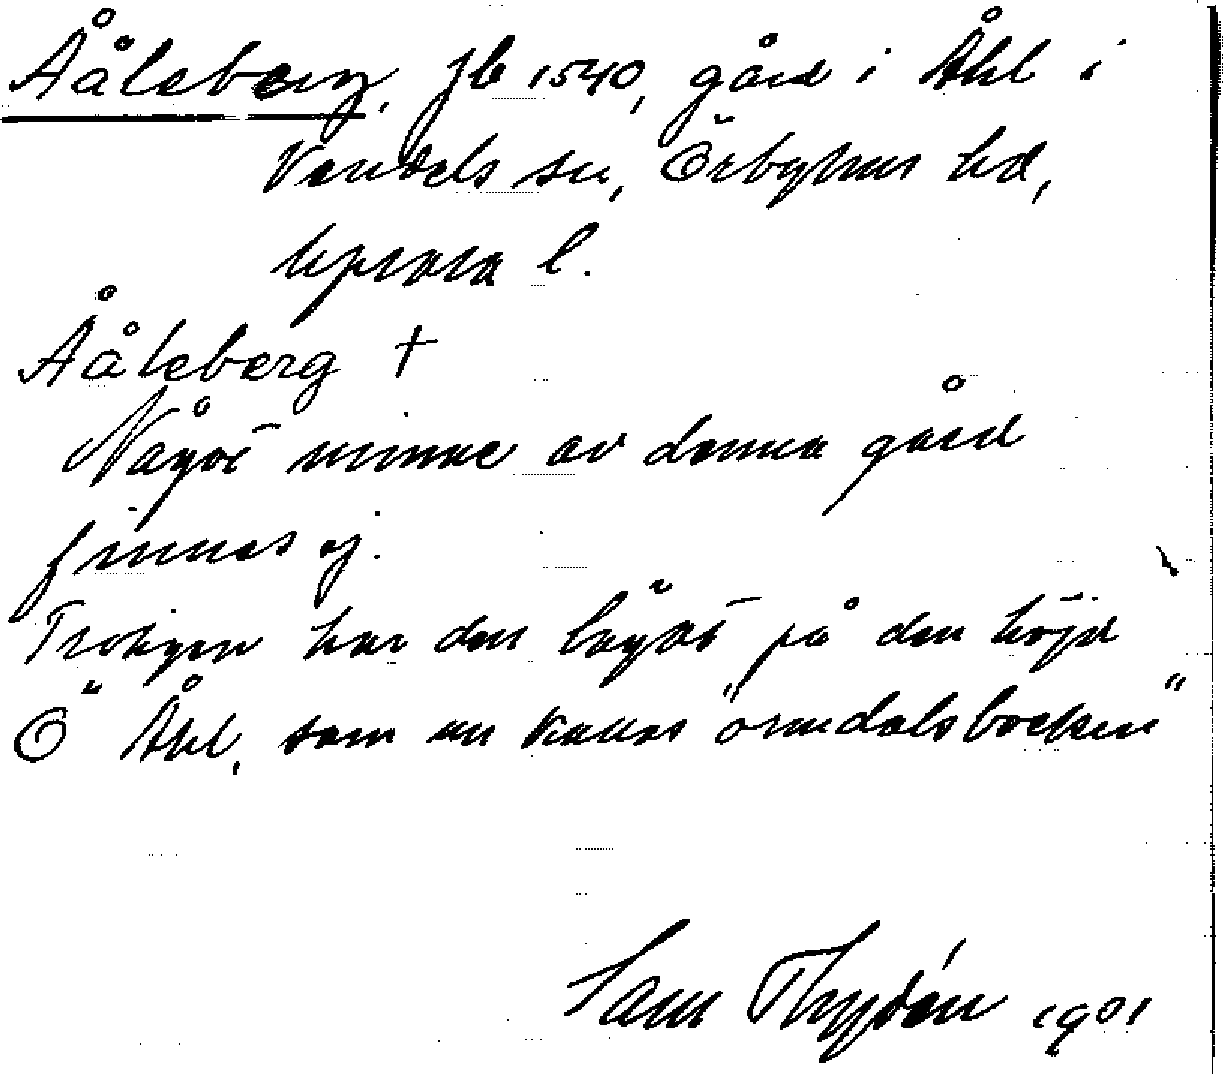 Ååleberg, Jb 1540, gård i Åkl i
Vendels sn, Örbyhus hd,
Uppsala l.
Ååleberg †
Något minne av denna gård
finnes ej.
Troligen har den legat på den höjd
Ö Åkl, som nu kallas "örndalsbacken"
Sam Thydén 1901